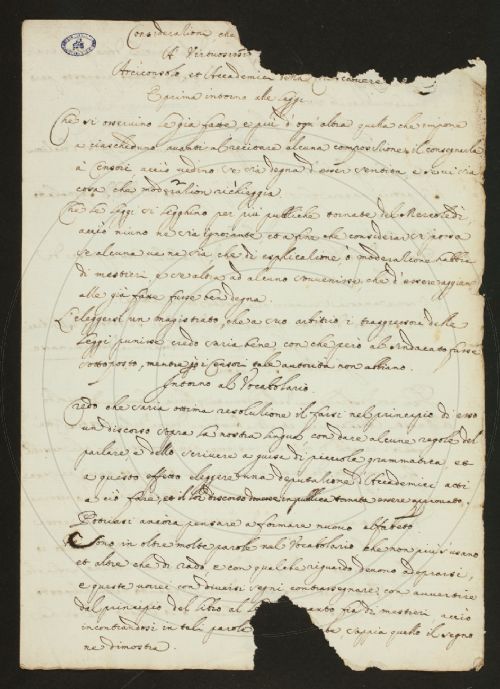 Consideratione, che
A Virtuosissi
Arciconsolo, et Accademici della
E prima intorno alle leggi
Che si osservino le già fatte e più d'ogn'altra quella che impone
a ciascheduno avanti al recitare alcuna compositione, il consegnarla
à Censori acciò vedino se sia degna d'esser sentita e se vi sia
cosa che moderation richieggia
Che le Leggi si legghino per più publiche tornate del Mercoledì
acciò niuno ne sia ignorante et a fine che considerar si possa
se alcuna ve ne sia che di esplicatione ò moderatione habbia
di mestieri e se altra ad alcuno sovvenisse che d'essere aggiunta
alle già fatte fusse ben degna.
L'eleggersi un magistrato, che a suo arbitrio i trasgressori delle
Leggi punisse credo saria bene con che però al sindacato fusse
sottoposto, mentre i Censori tale autorità non abbiano.
Intorno al Vocabolario
Credo che saria ottima resolutione il farsi nel principio di esso
un discorso sopra la nostra lingua con dare alcune regole del
parlare e dello scrivere a guisa di piccola grammatica et
a questo effetto eleggere una deputatione d'Accademici atti
a ciò fare, et il lor discorso dovesse in publica tornata essere approvato.
Potriasi ancora pensare a formare nuovo alfabeto
Sono in oltre molte parole nel Vocabolario che non più s'usano
et altre che di rado e con qualche riguardo devono adoprarsi,
e queste vorrei con diversi segni contrassegnarsi con avvertire
dal principio del libro al fia di mestieri acciò
incontrandosi in tali parole sappia quello il segno
ne dimostra.